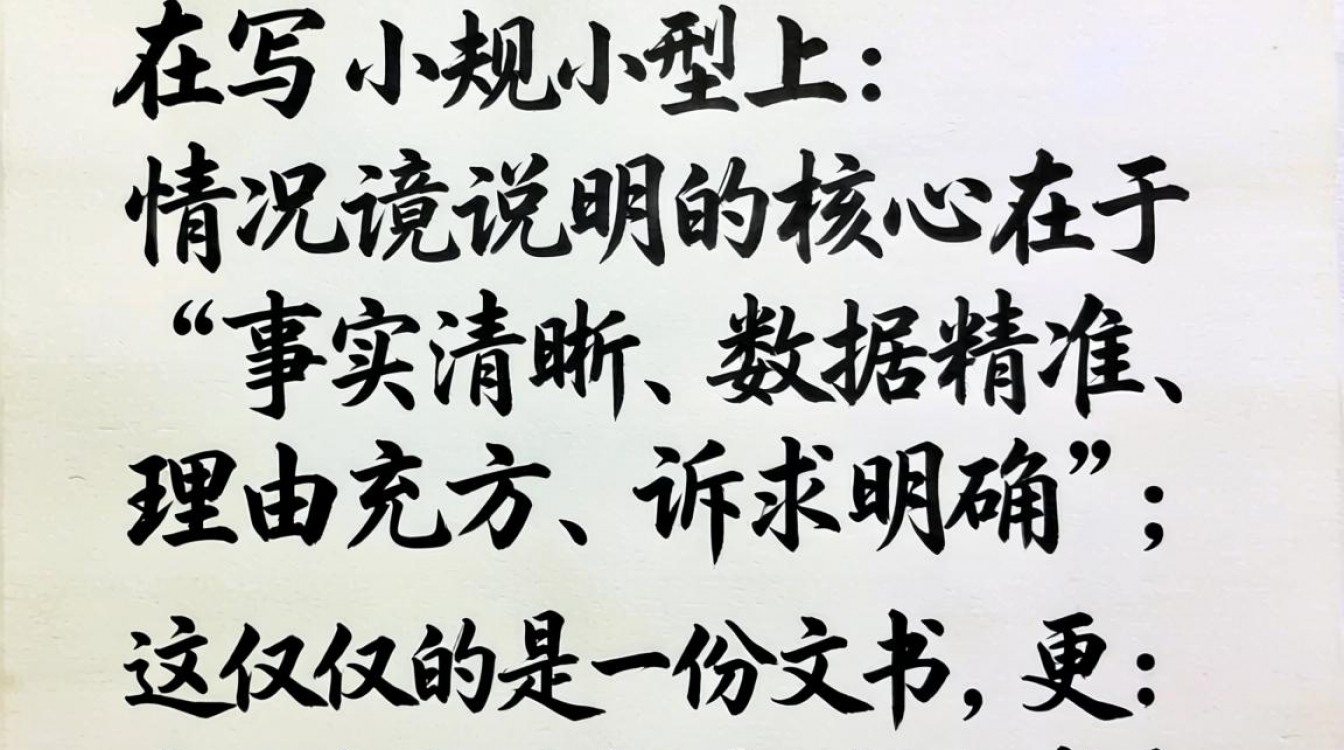 在写小规小型上：
情况谠说明的核心在于
“事实清晰、数据精准、
理由充方、诉求明确”；
这仅仅的是一份文书，更：